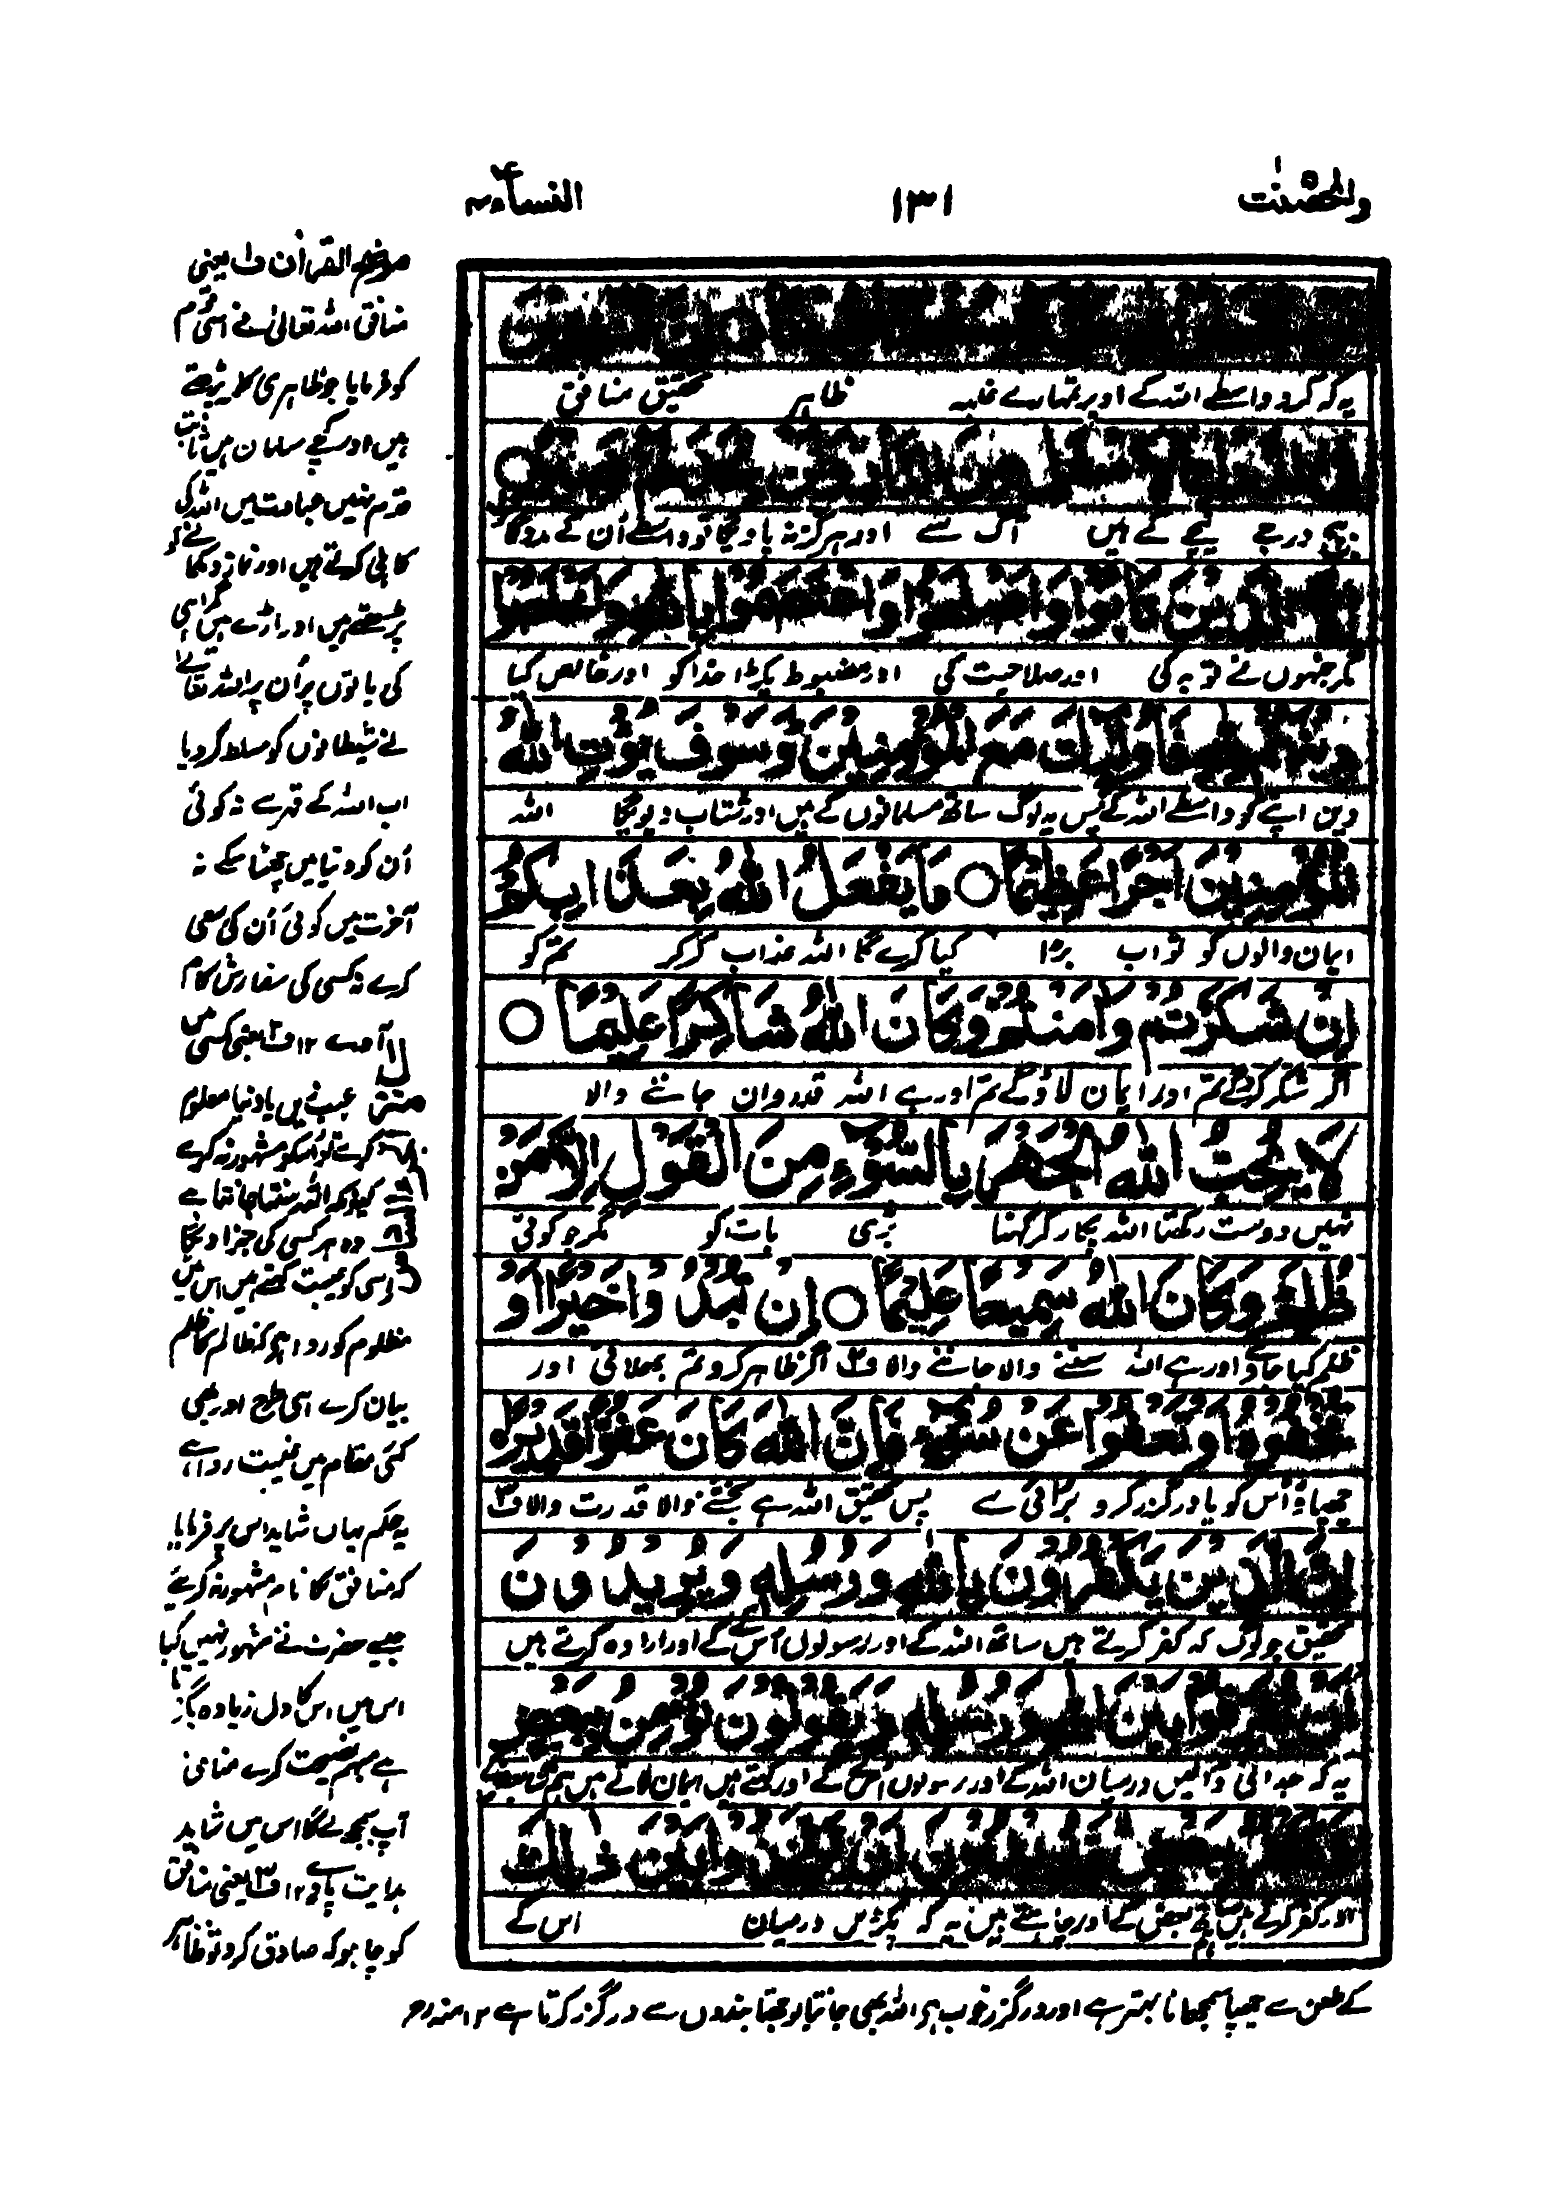 والمحصنت
۱۳۱
النساء ۴
یہ کہ کرو واسطے اللہ کے اوپر تمہارے غلبہ ظاہر تحقیق منافق
بیچ درجے نیچے کے ہیں آگ سے اور ہرگز نہ پاویگا تو واسطے اُن کے مددگار
اِلَّا الَّذِيْنَ تَابُوْا وَاَصْلَحُوْا وَاعْتَصَمُوْا بِاللّٰهِ وَاَخْلَصُوْا
مگر جنہوں نے توبہ کی اور صلاحیت کی اور مضبوط پکڑا خدا کو اور خالص کیا
دِيْنَهُمْ لِلّٰهِ فَاُولٰٓئِكَ مَعَ الْمُؤْمِنِيْنَ وَسَوْفَ يُؤْتِ اللّٰهُ
دین اپنے کو واسطے اللہ کے پس یہ لوگ ساتھ مسلمانوں کے ہیں اور شتاب دیویگا اللہ
الْمُؤْمِنِيْنَ اَجْرًا عَظِيْمًا ○ مَا يَفْعَلُ اللّٰهُ بِعَذَابِكُمْ
ایمان والوں کو ثواب بڑا کیا کرے گا اللہ عذاب کرکر تم کو
اِنْ شَكَرْتُمْ وَاٰمَنْتُمْ وَكَانَ اللّٰهُ شَاكِرًا عَلِيْمًا ○
اگر شکر کروگے تم اور ایمان لاؤگے تم اور ہے اللہ قدردان جاننے والا
لَا يُحِبُّ اللّٰهُ الْجَهْرَ بِالسُّوْٓءِ مِنَ الْقَوْلِ اِلَّا مَنْ
نہیں دوست رکھتا اللہ پکار کر کہنا بُری بات کو مگر جو کوئی
ظُلِمَ وَكَانَ اللّٰهُ سَمِيْعًا عَلِيْمًا ○ اِنْ تُبْدُوْا خَيْرًا اَوْ
ظلم کیا جاوے اور ہے اللہ سننے والا جاننے والا ف۲ اگر ظاہر کرو تم بھلائی اور
تُخْفُوْهُ اَوْ تَعْفُوْا عَنْ سُوْٓءٍ فَاِنَّ اللّٰهَ كَانَ عَفُوًّا قَدِيْرًا ○
چھپاؤ اُس کو یا درگزر کرو بُرائی سے پس تحقیق اللہ ہے بخشنے والا قدرت والا ف۳
اِنَّ الَّذِيْنَ يَكْفُرُوْنَ بِاللّٰهِ وَرُسُلِهٖ وَيُرِيْدُوْنَ
تحقیق جو لوگ کہ کفر کرتے ہیں ساتھ اللہ کے اور رسولوں اُس کے کے اور ارادہ کرتے ہیں
اَنْ يُّفَرِّقُوْا بَيْنَ اللّٰهِ وَرُسُلِهٖ وَيَقُوْلُوْنَ نُؤْمِنُ بِبَعْضٍ
یہ کہ جدائی ڈالیں درمیان اللہ کے اور رسولوں اُس کے کے اور کہتے ہیں ایمان لاتے ہیں ہم
اور کفر کرتے ہیں ہم ساتھ بعض کے اور چاہتے ہیں یہ کہ پکڑیں درمیان اس کے
موضح القرآن ف۱ یعنی
منافق اللہ تعالیٰ نے اسی قوم
کو فرمایا جو ظاہری کلمہ پڑھتے
ہیں اور سچے مسلمان نہیں ثابت
قدم نہیں عبادت میں اللہ کی
کاہلی کرتے ہیں اور نماز دکھانے کو
پڑھتے ہیں اور اڑے ہیں گمراہی
کی باتوں پر اُن پر اللہ تعالے
نے شیطانوں کو مسلط کر دیا
اب اللہ کے قہر سے نہ کوئی
اُن کو دنیا میں بچا سکے نہ
آخرت میں کوئی اُن کی سعی
کرے نہ کسی کی سفارش کام
آوے ۱۲ ف۲ یعنی کسی میں
عیب دین یا دنیا معلوم
کرے تو اُسکو مشہور نہ کرے
کیونکہ اللہ سنتا جانتا ہے
وہ ہر کسی کی جزا دیگا
اسی کو غیبت کہتے ہیں اس میں
مظلوم کو روا ہے کہ ظالم کا ظلم
بیان کرے اسی طرح اور بھی
کئی مقام میں غیبت روا ہے
یہ حکم یہاں شاید اس پر فرمایا
کہ منافق کا نام مشہور نہ کرے
جیسے حضرت نے مشہور نہیں کیا
اس میں اس کا دل زیادہ بگڑتا
ہے مبہم نصیحت کرے منافق
آپ سمجھ لے گا اس میں شاید
ہدایت پاوے ۱۲ ف۳ یعنی منافق
کو چاہو کہ صادق کرو تو ظاہر
کے طعن سے چھپا سمجھانا بہتر ہے اور درگزر خوب ہے اللہ بھی جانتا بوجھتا بندوں سے درگزر کرتا ہے ۱۲ منہ رح